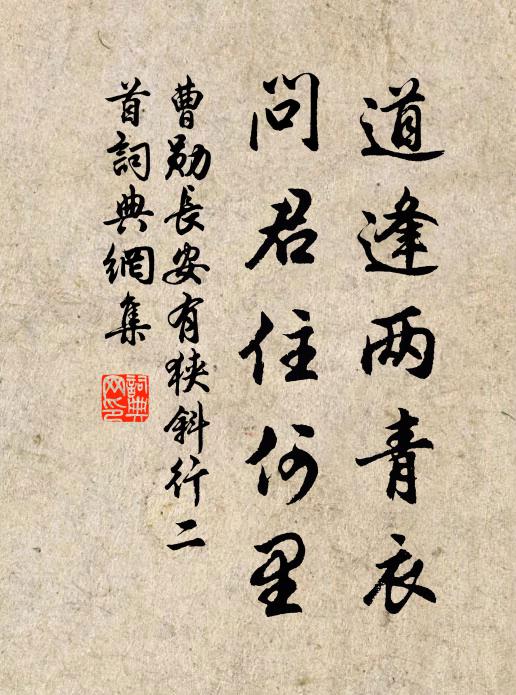 道逢两青衣
问君住何里
曹勋长安有狭斜行二
首词典網集
詞典
网印